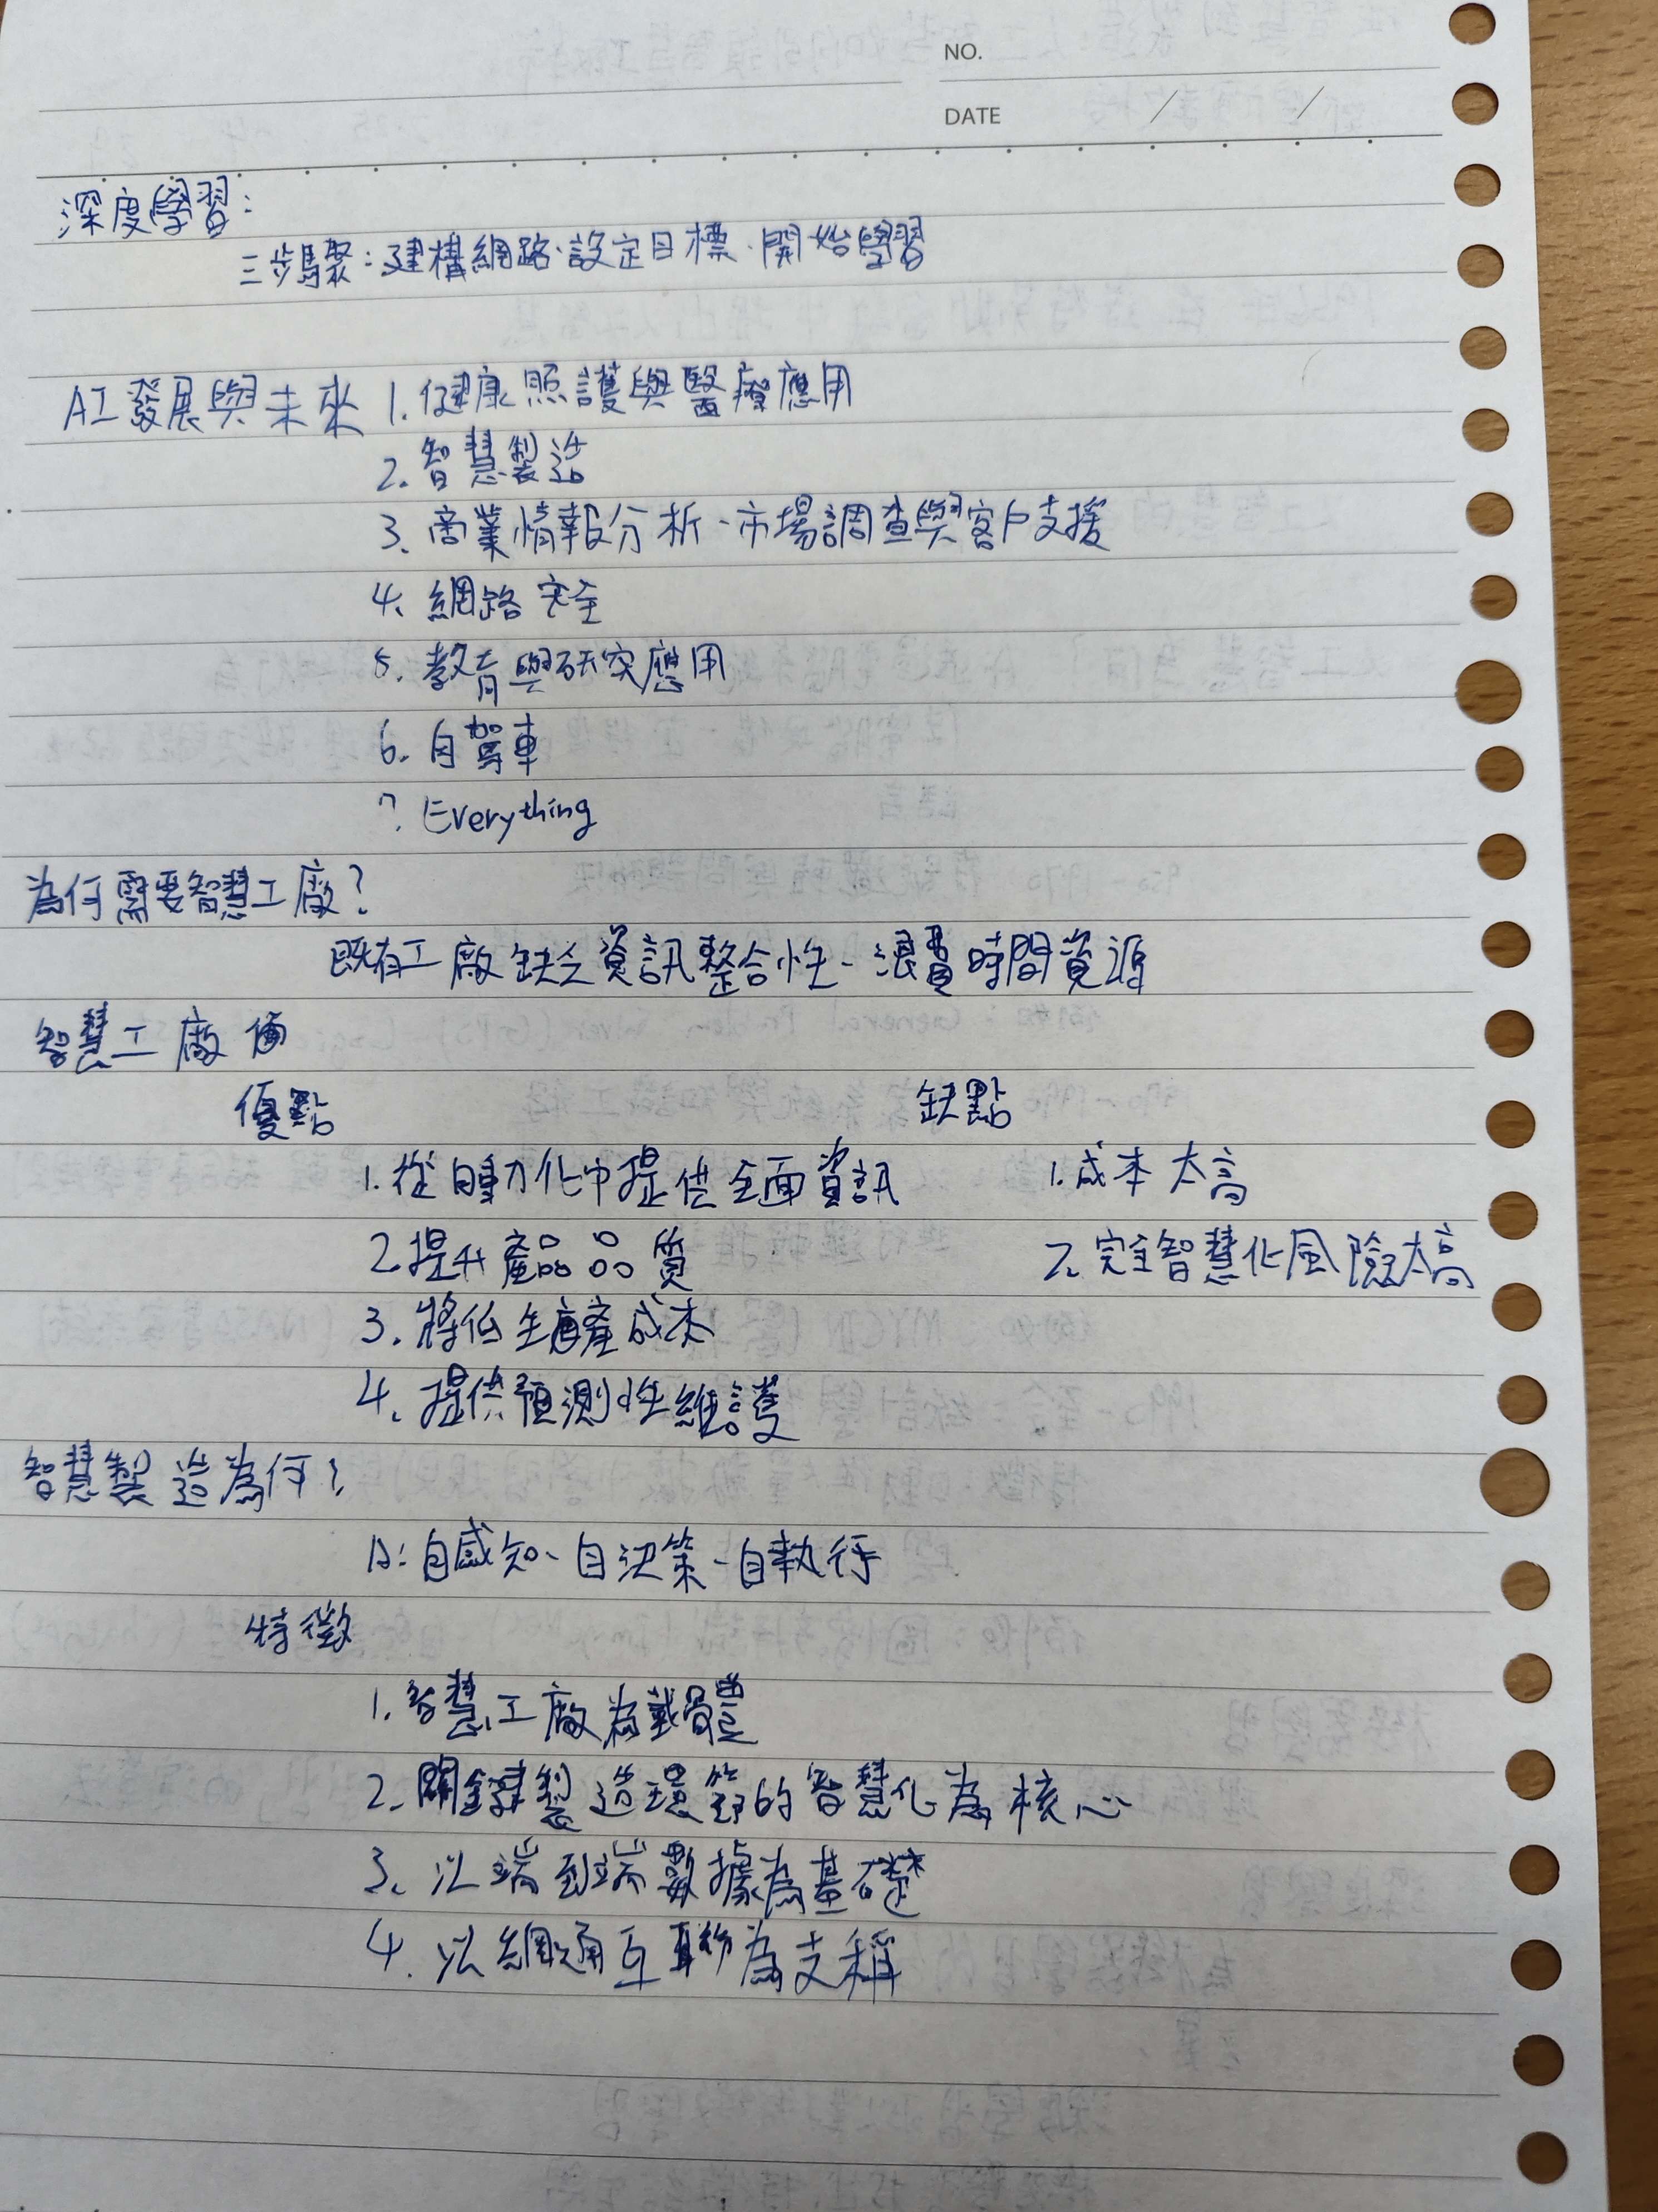 NO.
DATE / /
深度學習:
三步驟:建構網路、設定目標、開始學習
AI發展與未來 1.健康照護與醫療應用
2.智慧製造
3.商業情報分析、市場調查與客戶支援
4.網路安全
5.教育與研究應用
6.自駕車
7.Everything
為何需要智慧工廠?
既有工廠缺乏資訊整合性、浪費時間資源
智慧工廠
優點 缺點
1.從自動化中提供全面資訊 1.成本太高
2.提升產品品質 2.完全智慧化風險太高
3.將低生產成本
4.提供預測性維護
智慧製造為何?
A:自感知、自決策、自執行
特徵
1.智慧工廠為載體
2.關鍵製造環節的智慧化為核心
3.以端到端數據為基礎
4.以網通互聯為支稱